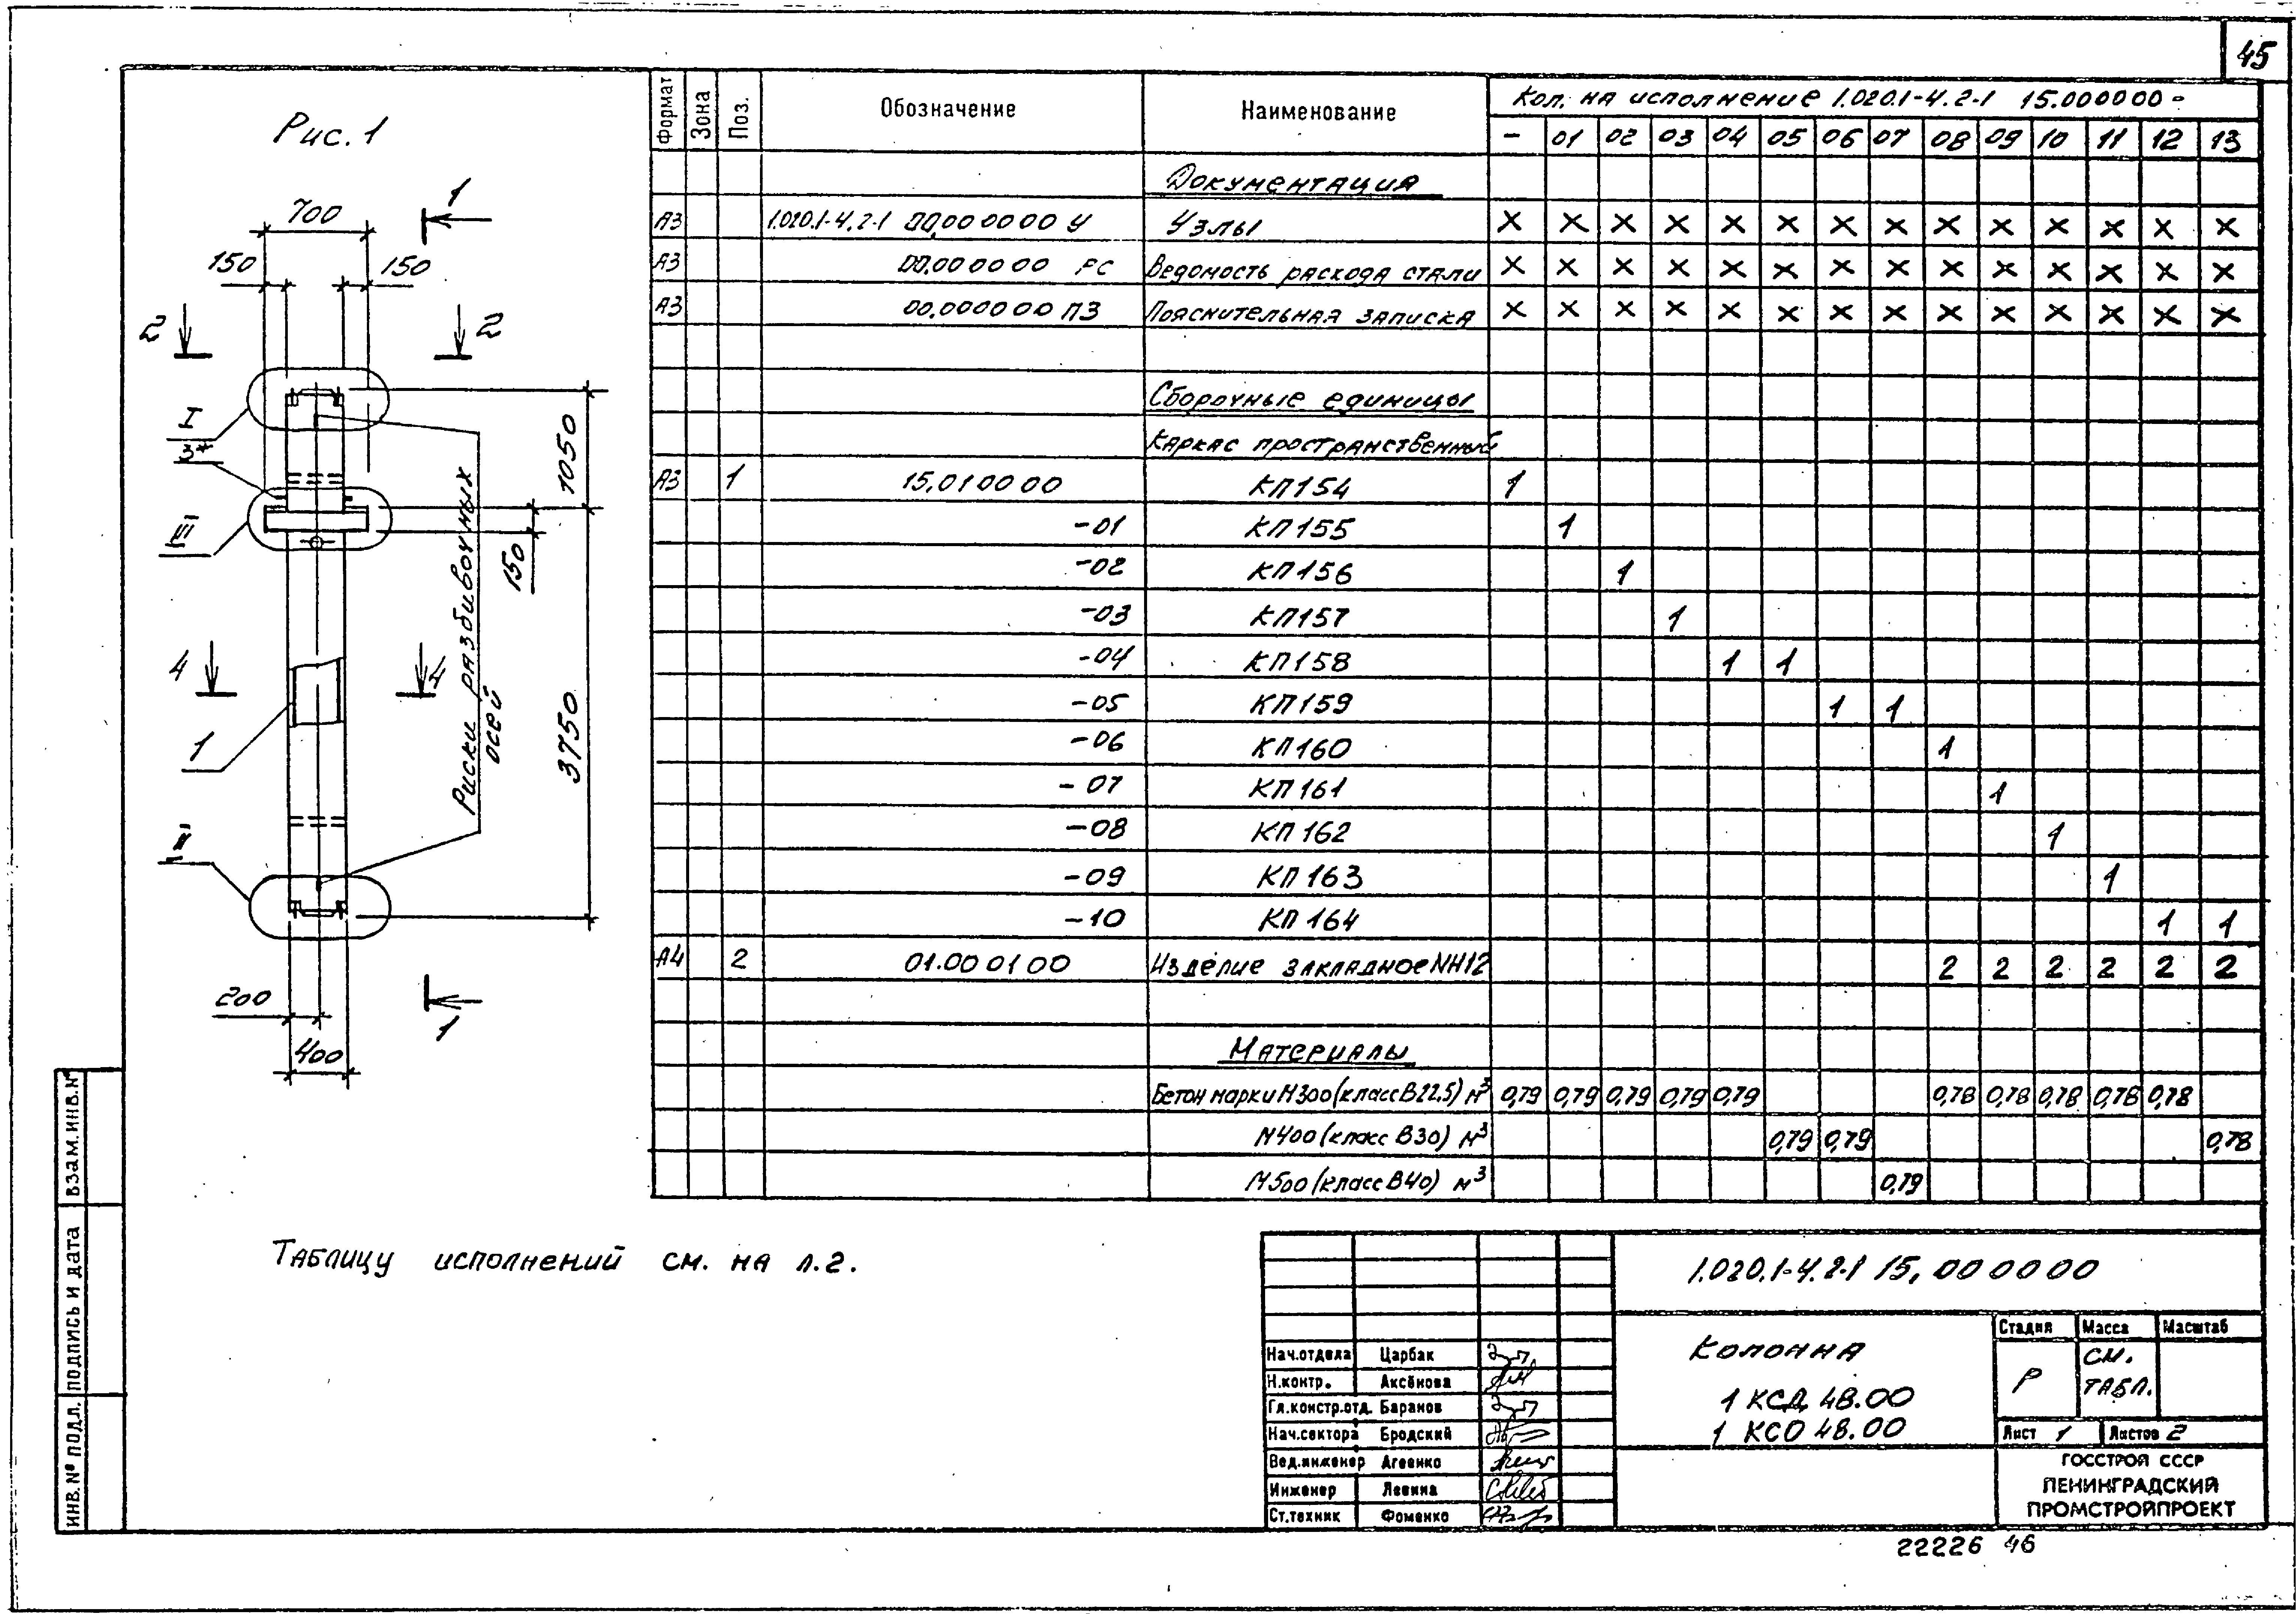 45
Рис. 1
1
700
150 150
2 2
I
3*
III
1050
150
Риски разбивочных
осей
4 4
3750
1
II
200
1
400
Формат Зона Поз. Обозначение Наименование Кол. на исполнение 1.020.1-4.2-1 15.000000-
- 01 02 03 04 05 06 07 08 09 10 11 12 13
Документация
А3 1.020.1-4.2-1 00.000000 У Узлы × × × × × × × × × × × × × ×
А3 00.000000 РС Ведомость расхода стали × × × × × × × × × × × × × ×
А3 00.000000 ПЗ Пояснительная записка × × × × × × × × × × × × × ×
Сборочные единицы
Каркас пространственный
А3 1 15.010000 КП154 1
-01 КП155 1
-02 КП156 1
-03 КП157 1
-04 КП158 1 1
-05 КП159 1 1
-06 КП160 1
-07 КП161 1
-08 КП162 1
-09 КП163 1
-10 КП164 1 1
А4 2 01.000100 Изделие закладное МН12 2 2 2 2 2 2
Материалы
Бетон марки М300 (класс В22,5) м³ 0,79 0,79 0,79 0,79 0,79 0,78 0,78 0,78 0,78 0,78
М400 (класс В30) м³ 0,79 0,79 0,78
М500 (класс В40) м³ 0,79
Таблицу исполнений см. на л.2.
1.020.1-4.2-1 15.000000
Колонна
1 КСД 48.00
1 КСО 48.00
Стадия Масса Масштаб
Р см. табл.
Лист 1 Листов 2
ГОССТРОЙ СССР
ЛЕНИНГРАДСКИЙ
ПРОМСТРОЙПРОЕКТ
Нач.отдела Царбак
Н.контр. Аксёнова
Гл.констр.отд. Баранов
Нач.сектора Бродский
Вед.инженер Агеенко
Инженер Левина
Ст.техник Фоменко
22226 46
ИНВ.№ ПОДЛ. ПОДПИСЬ И ДАТА ВЗАМ.ИНВ.№